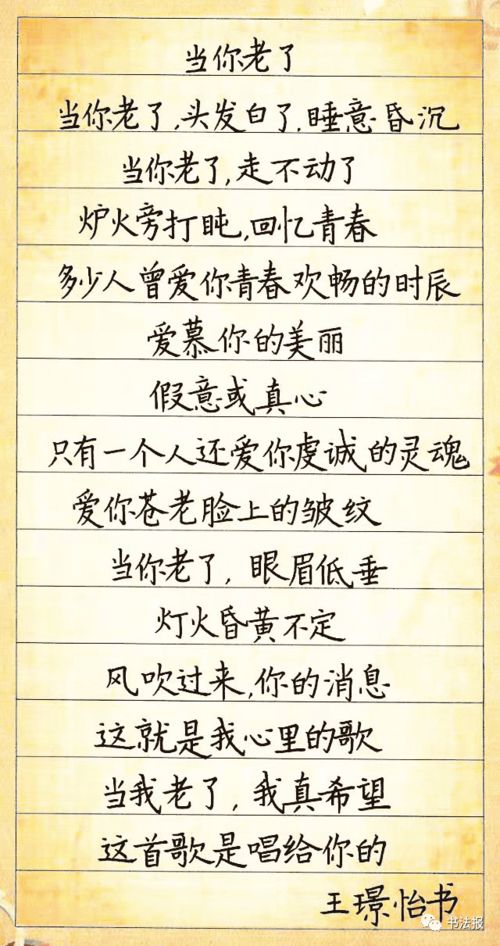 当你老了
当你老了,头发白了,睡意昏沉
当你老了,走不动了
炉火旁打盹,回忆青春
多少人曾爱你青春欢畅的时辰
爱慕你的美丽
假意或真心
只有一个人还爱你虔诚的灵魂
爱你苍老脸上的皱纹
当你老了,眼眉低垂
灯火昏黄不定
风吹过来,你的消息
这就是我心里的歌
当我老了,我真希望
这首歌是唱给你的
王璟怡书
书法报